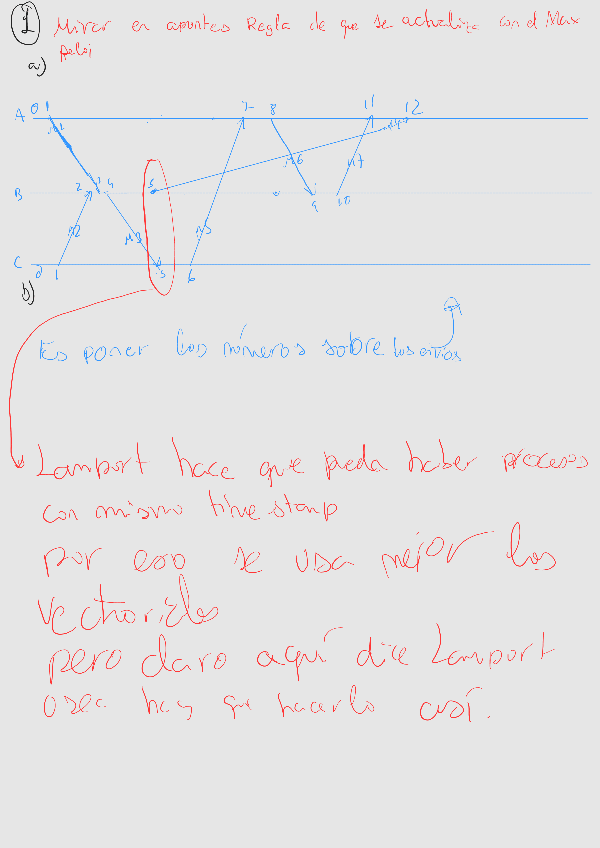 1 Mirar en apuntes Regla de que se actualiza con el Max
Reloj
a)
A 0 1 7 8 11 12
M1 M4
M6 M7
B 2 3 4 5 9 10
M2 M3 M5
C 0 1 5 6
b)
Es poner los números sobre los envíos
Lamport hace que pueda haber procesos
con mismo time stamp
por eso se usa mejor los
vectoriales
pero claro aquí dice Lamport
osea hay que hacerlo así.